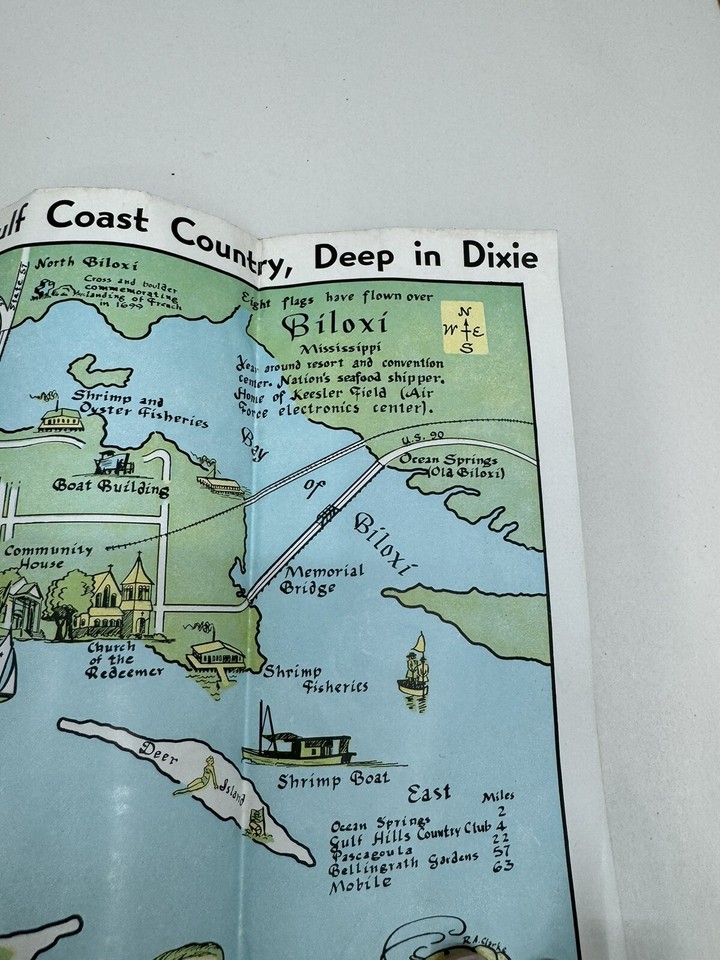 ulf Coast Country, Deep in Dixie
State 67
North Biloxi
Cross and boulder
commemorating
landing of French
in 1699
Eight flags have flown over
Biloxi
Mississippi
Year around resort and convention
center. Nation's seafood shipper.
Home of Keesler Field (Air
Force electronics center).
N
W E
S
Shrimp and
Oyster Fisheries
Boat Building
Bay
of
Biloxi
U.S. 90
Ocean Springs
(Old Biloxi)
Community
House
Memorial
Bridge
Church
of the
Redeemer
Shrimp
Fisheries
Deer
Island
Shrimp Boat
East Miles
Ocean Springs 2
Gulf Hills Country Club 4
Pascagoula 22
Bellingrath Gardens 57
Mobile 63
R.A. Clarke